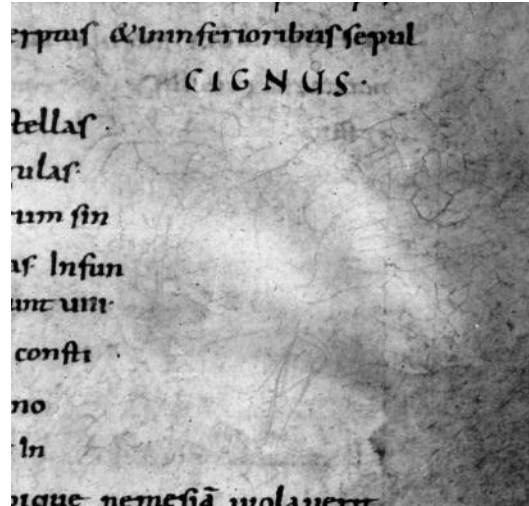 erptus & in inferioribus sepul
CIGNUS·
tellas·
gulas·
rum sin
as Infun
unt uıııı·
consti
no
In
pique nemesiā uiolauerit